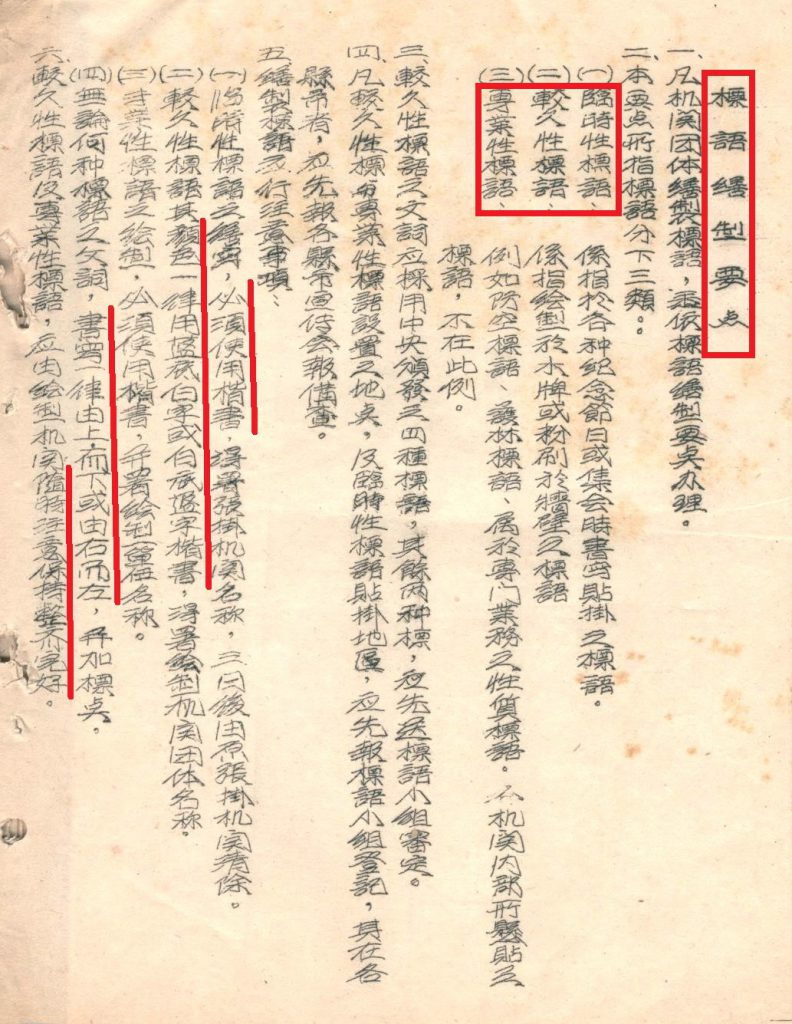 標語繪製要点
一、凡机関团体繪製標語，悉依標語繪製要点办理。
二、本要点所指標語分下三類。
(一)臨時性標語、係指於各种紀念節日或集会時書寫貼掛之標語。
(二)較久性標語、係指绘製於木牌或粉刷於牆壁之標語
(三)專業性標語、例如防空標語、護林標語、屬於專门業務之性質標語。各机関内部所懸貼之
標語，不在此例。
三、較久性標語之文詞应採用中央頒發三四種標語，其餘两种標，应先送標語小組審定。
四、凡較久性標 專業性標語設置之地点，及臨時性標語貼掛地區，应先報標語小組登記，其在各
縣市者，应先報各縣市宣传会報備查。
五、繪製標語应行注意事項、
(一)臨時性標語之繕寫，必須使用楷書，得署張掛机関名称，三日後由原張掛机関清除。
(二)較久性標語其顏色一律用藍底白字或白底藍字楷書，得署绘製机関团体名称。
(三)專業性標語之绘製，必須使用楷書，并署绘製單位名称。
(四)無論何种標語之文詞，書寫一律由上而下或由右而左，并加標点。
六、較久性標語及專業性標語，应由绘製机関隨時注意保持整齐完好。